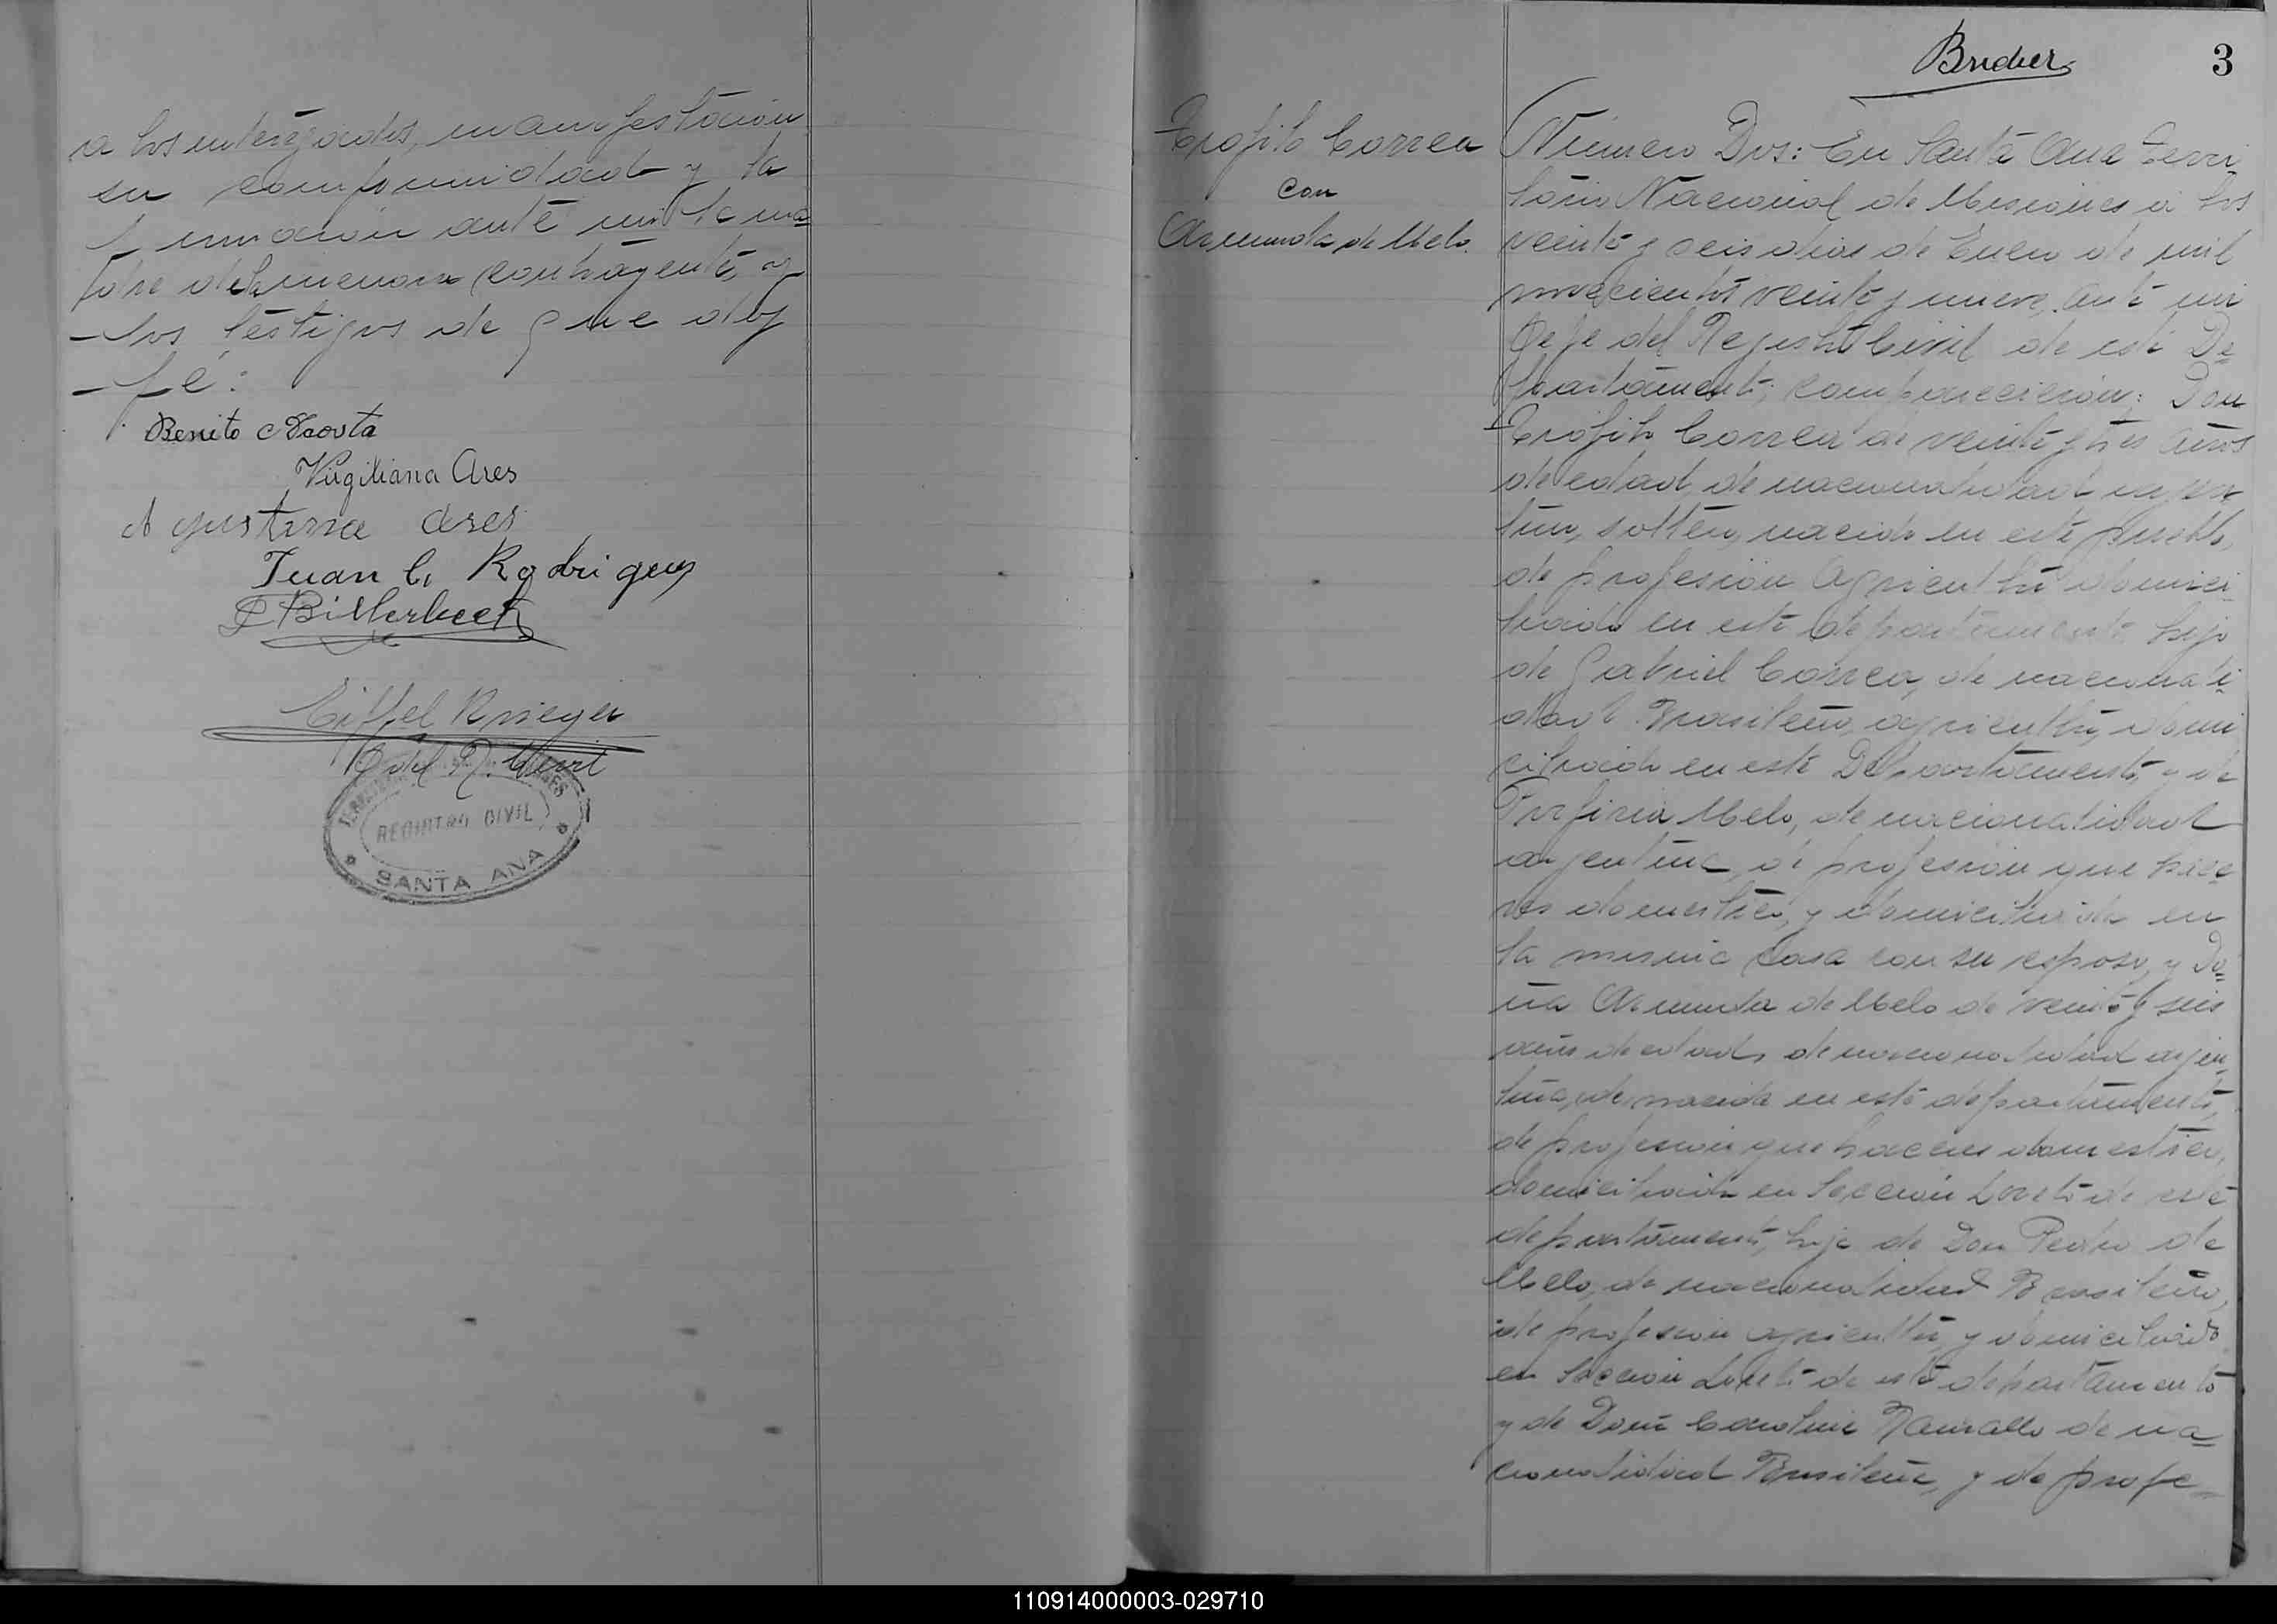 a los interezados, manifestaron
su conformidad y la
firmaron ante mi la ma-
dre del menor contrayente, y
los testigos de que doy
fé:
Benito Acosta
Virgiliana Ares
Agustina Ares
Juan C. Rodrigues
Billerbeck
Eiffel Krieger
REGISTRO CIVIL
SANTA ANA
3
Trofilo Correa
con
Armenda de Melo.
Número Dos: En Santa Ana Terri-
torio Nacional de Misiones a los
veinte y seis dias de Enero de mil
novecientos veinte y nueve, ante mi
Jefe del Registro Civil de este De-
partamento, comparecieron; Don
Trofilo Correa de veinte y tres años
de edad, de nacionalidad argen
tino, soltero, nacido en este pueblo,
de profesión Agricultor domici-
liado en este departamento, hijo
de Gabriel Correa, de nacionali-
dad Brasileño, agricultor, domi
ciliado en este Departamento, y de
Porfiria Melo, de nacionalidad
argentina, de profesión que hace-
res domestico, y domiciliada en
la misma casa con su esposo, y Do-
ña Armenda de Melo de veinte y seis
años de edad, de nacionalidad argen-
tina, nacida en este departamento,
de profesion que haceres domestico,
domiciliada en Sección Loreto de este
departamento, hija de Don Pedro de
Melo, de nacionalidad Brasileño,
de profesion agricultor, y domiciliado
en Sección Loreto de este departamento
y de Doña Carolina Ramallo de na-
cionalidad Brasileña, y de profe-
110914000003-029710